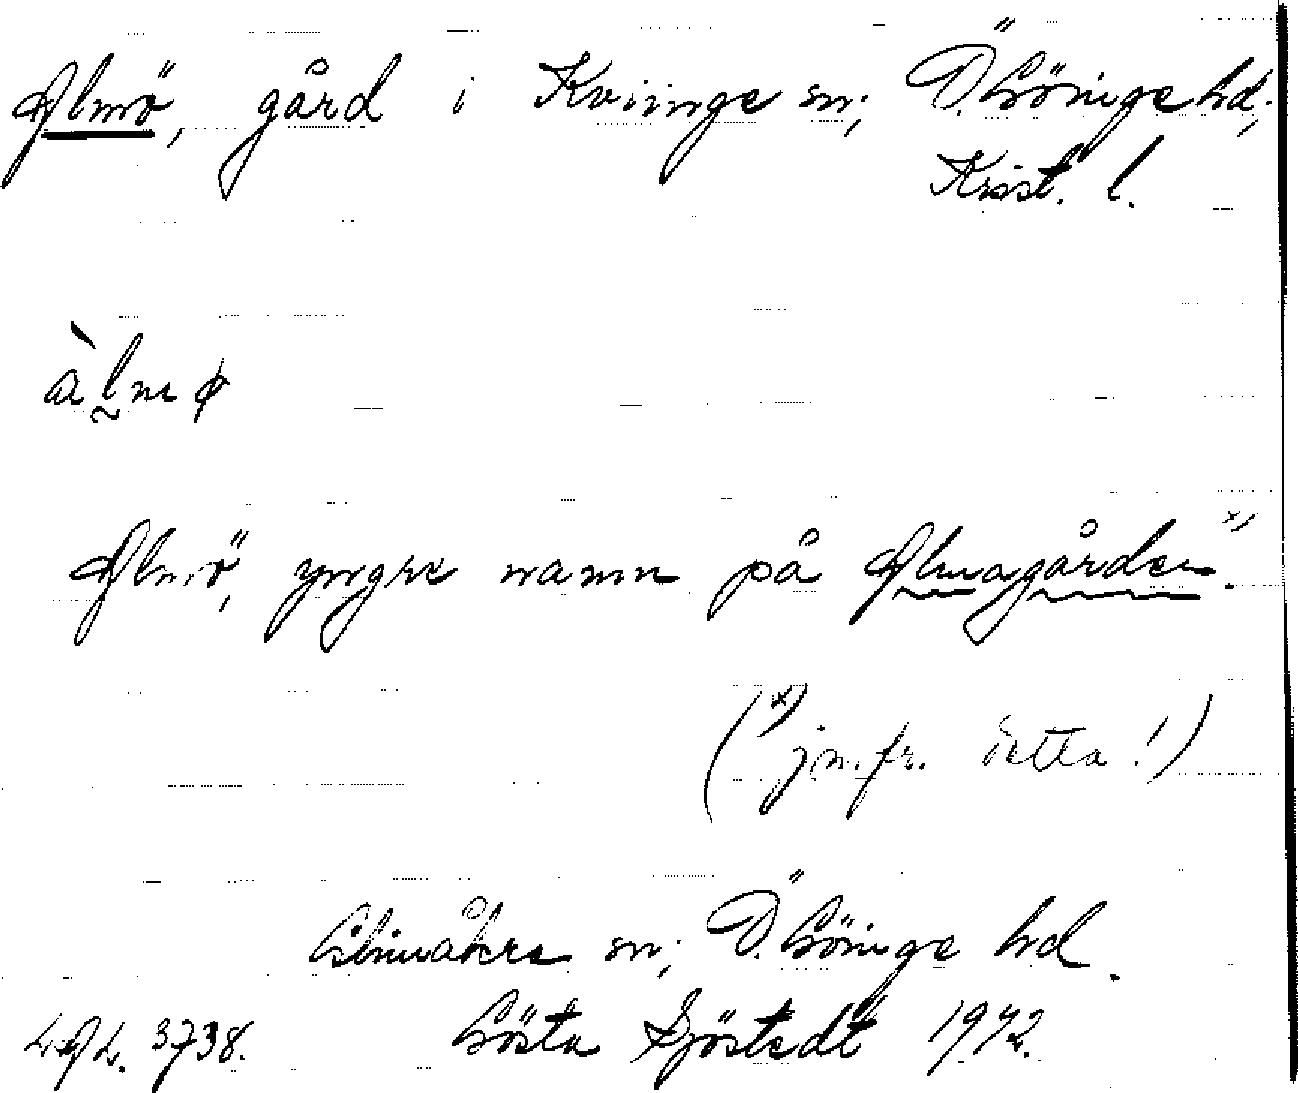 Almö, gård i Kviinge sn; Ö. Göinge hd;
Krist. l.
àlmø
Almö, yngre namn på Almagården x).
(x) jmfr. detta!)
Glimåkra sn; Ö. Göinge hd.
LAL. 3738. Gösta Sjöstedt 1972.